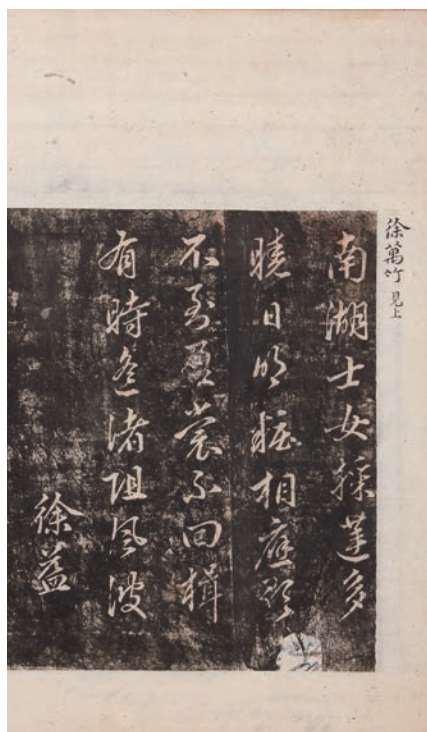 徐萬竹 見上
南湖士女採蓮多
曉日明粧相應歌
不到盈裳不回楫
有時渚阻風波
徐益